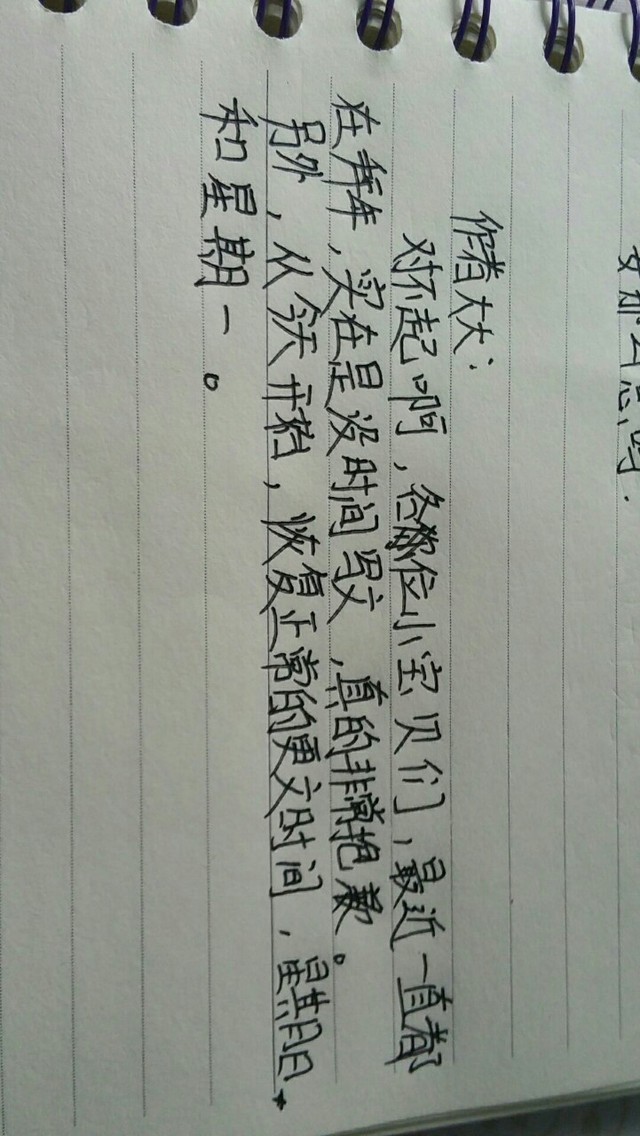 作者大大：
对不起啊，各位小宝贝们，最近一直都
在拜年，实在是没时间写文，真的非常抱歉。
另外，从今天开，恢复正常的更文时间，星期日
和星期一。